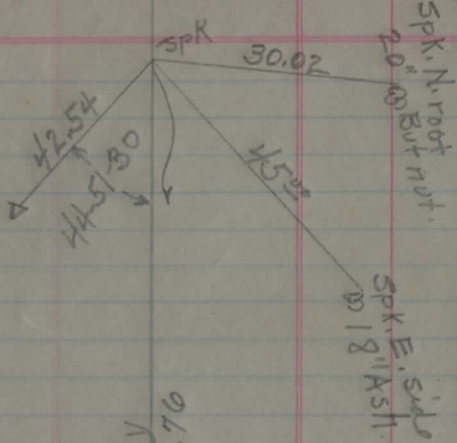 spk
30.02
Spk. N. root
20" Butnut.
42.54
44-51-30
45.00
Spk. E. side
18" Ash.
.76